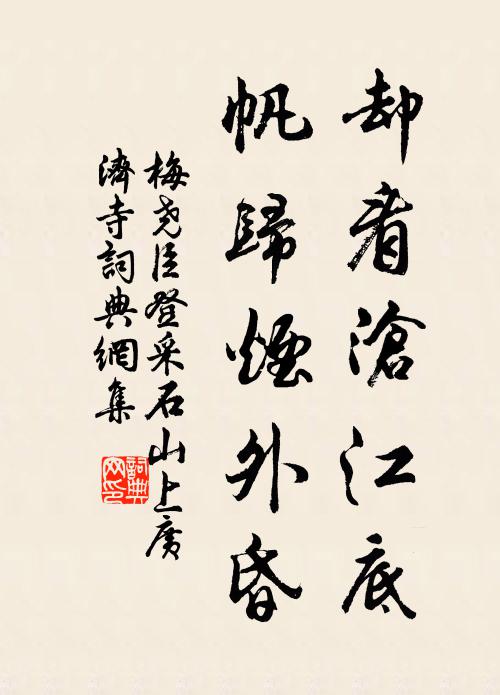 却看滄江底
帆歸煙外昏
梅堯臣登采石山上廣
濟寺詞典網集
詞典网印